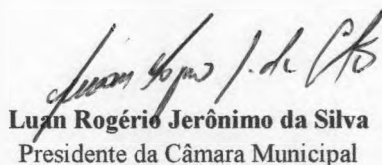 Luan Rogério Jerônimo da Silva
Presidente da Câmara Municipal